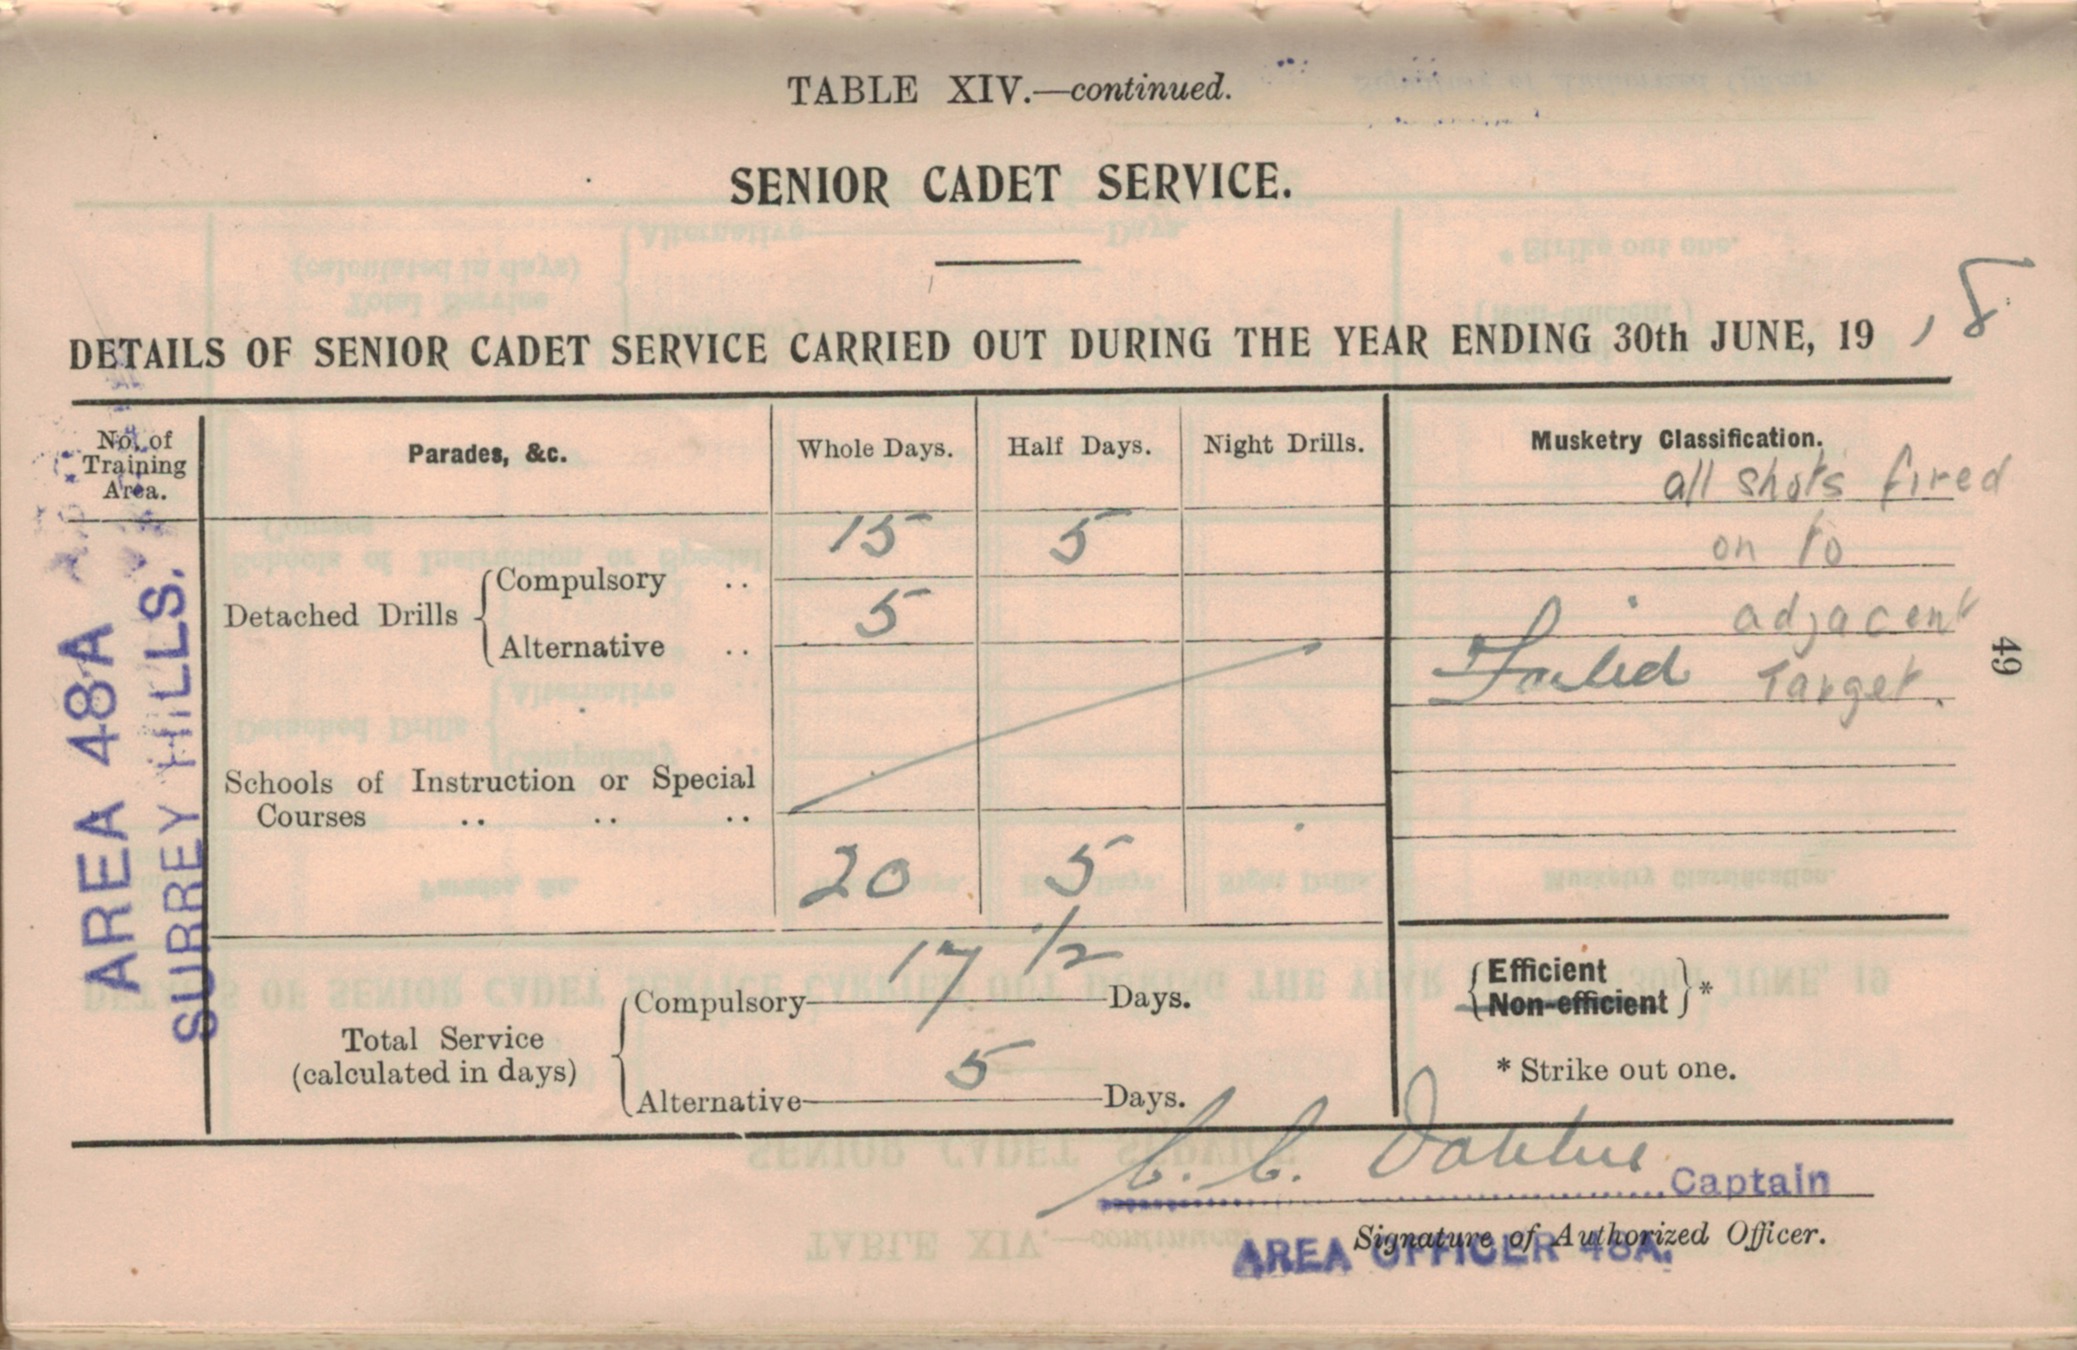 TABLE XIV.—continued.
SENIOR CADET SERVICE.
DETAILS OF SENIOR CADET SERVICE CARRIED OUT DURING THE YEAR ENDING 30th JUNE, 19 18
No. of Training Area.
Parades, &c.
Whole Days.
Half Days.
Night Drills.
Musketry Classification.
AREA 48A
SURREY HILLS.
Detached Drills
Compulsory .. 15 5
Alternative .. 5
Schools of Instruction or Special
Courses .. .. ..
20 5
all shots fired
on to
adjacent
Failed Target.
Total Service
(calculated in days)
Compulsory 17 1/2 Days.
Alternative 5 Days.
Efficient
Non-efficient *
* Strike out one.
C. C. Captain
Signature of Authorized Officer.
AREA OFFICER 48A.
49